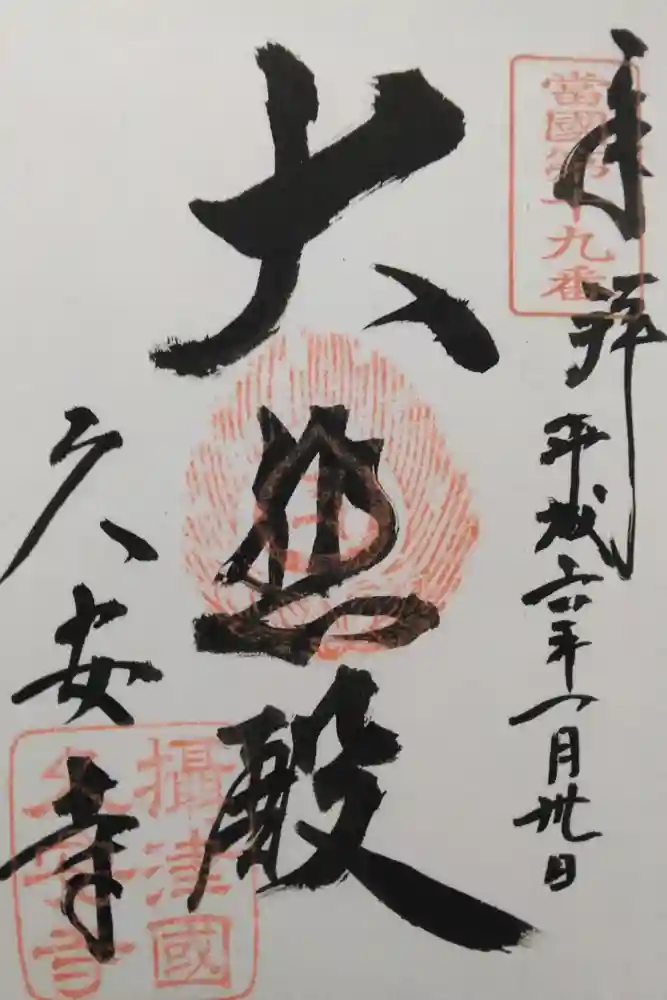 當國第十九番
奉拝
平成六年一月卅日
大悲殿
久安寺
攝津國
久安寺